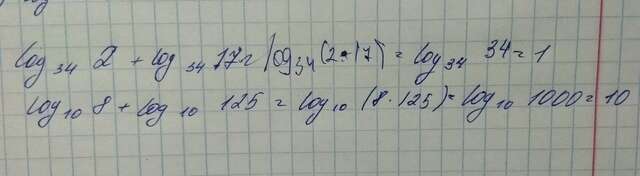 log₃₄ 2 + log₃₄ 17 = log₃₄ (2·17) = log₃₄ 34 = 1
log₁₀ 8 + log₁₀ 125 = log₁₀ (8·125) = log₁₀ 1000 = 10